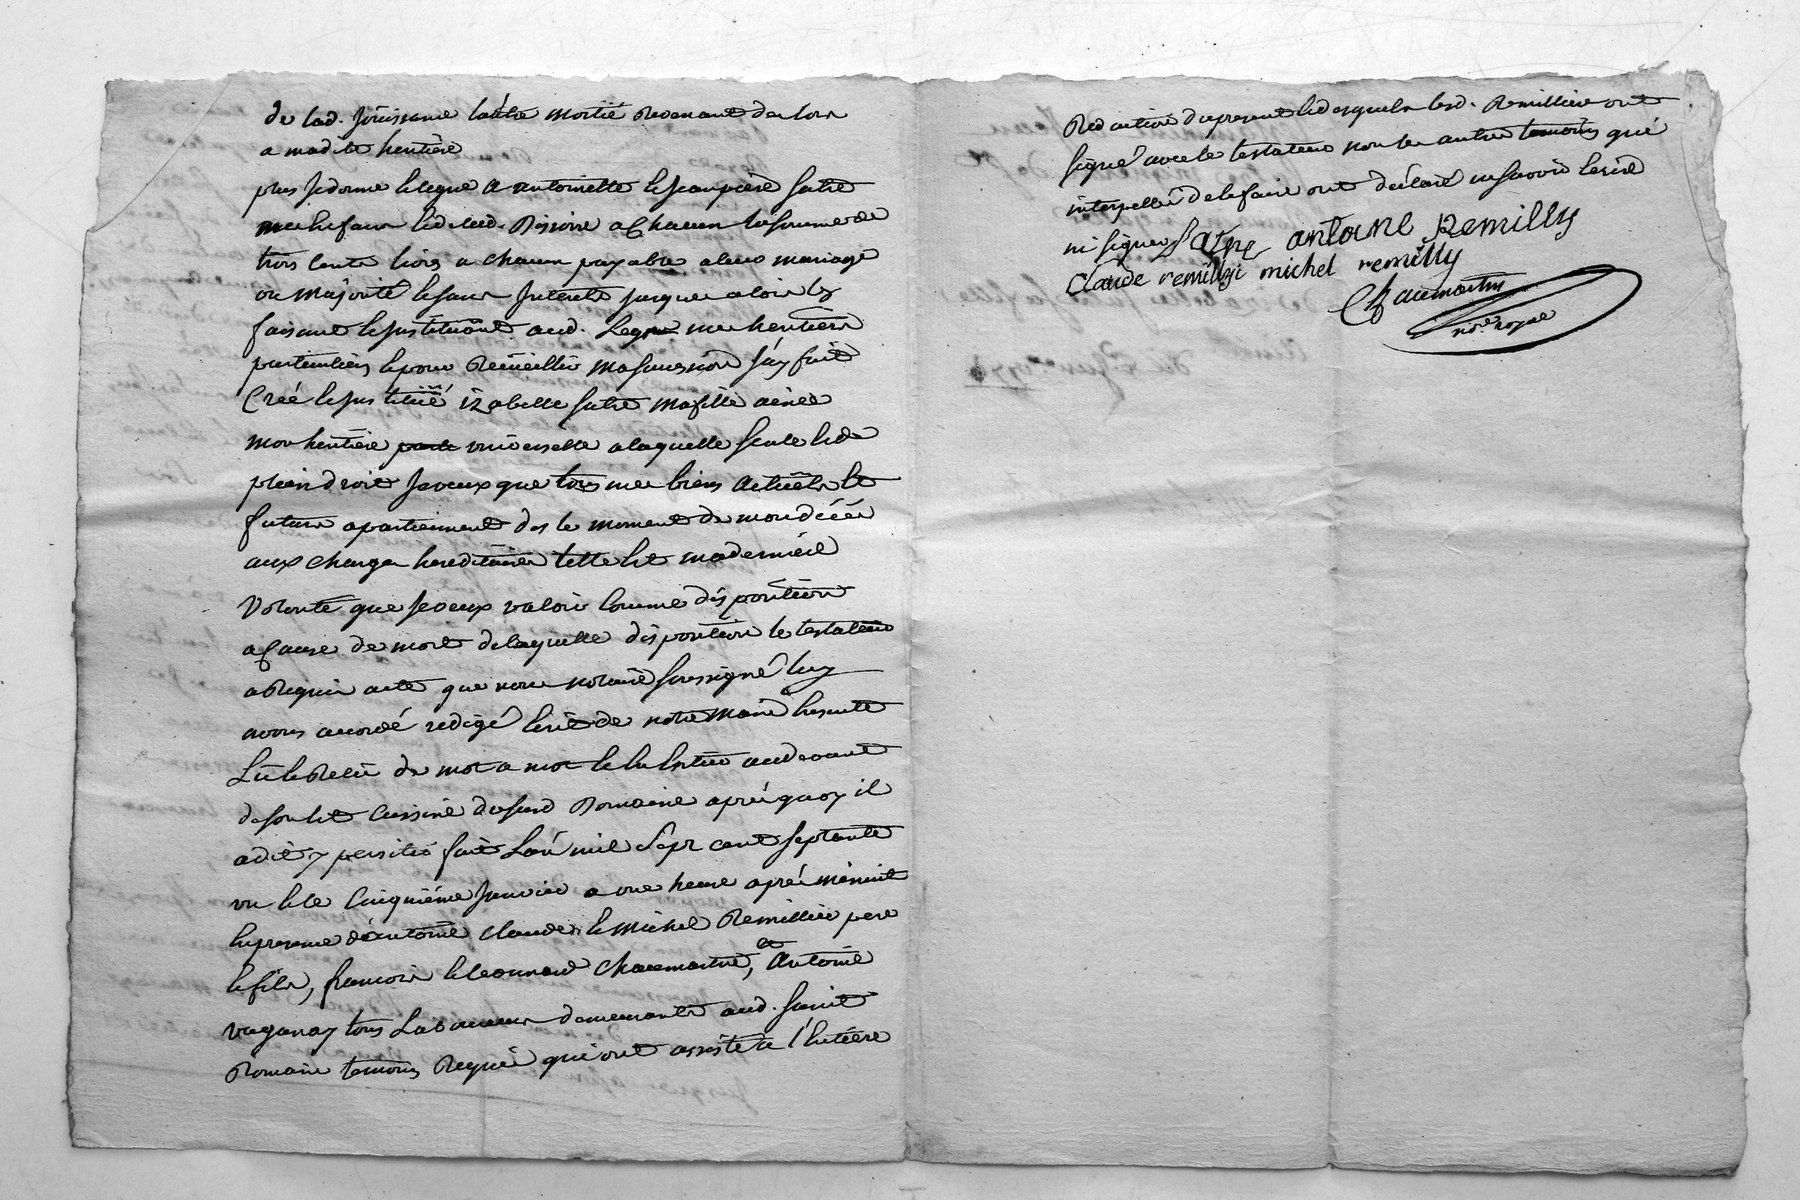 de lad. Jouissance l'autre moitié Revenant des lors
a mad.te heritière
plus Je donne & legue a antoinette & françoise satre
mes enfans & de lad. a chacun la somme de
trois cents livres a chacun payable a leur mariage
ou majorité & sans Interets Jusques alors les
faisant & Instituant aud. Legs mes heritiers
particuliers & pour Recueillir ma succession J'ay fait
Créé & Institué izabelle satre ma fille ainée
mon heritiere universelle a laquelle seule & de
plein droit Je veux que tous mes biens actuels &
futurs apartiennent des le moment de mon décés
aux charges hereditaires telle est ma derniére
Volonté que Je veux valoir comme disposition
a cause de mort de laquelle disposition le testateur
a Requis acte que nous notaire soussigné luy
avons accordé redigé & écrit de notre main & ensuitte
Lu & Relu de mot a mot & lu au devant
de son lit cuisine dud Romaine aprés quoy il
a dit y persister fait L'an mil Sept cent septante
un & le Cinquiéme Janvier a une heure aprés minuit
En presence d'antoine claude & Michel Remillier pere
& fils, françois & Leonnard Chaumartin, et Antoine
vaganay tous Laboureurs demeurants aud. Saint
Romain temoins Requis qui ont assisté a l'entiére
Redaction du present & desquels lesd. Remillier ont
signé avec le testateur non les autres temoins qui
interpellés de le faire ont déclaré ne savoir écrire
ni signer Satre antoine Remilly
claude remilly michel remilly
Chaumartin
no.re royal